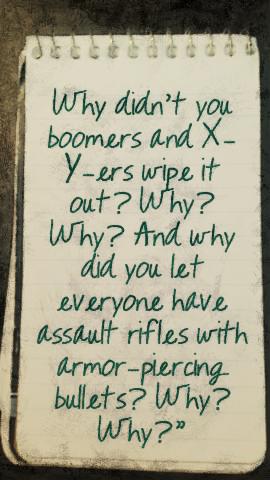 Why didn't you
boomers and X-
Y-ers wipe it
out? Why?
Why? And why
did you let
everyone have
assault rifles with
armor-piercing
bullets? Why?
Why?"